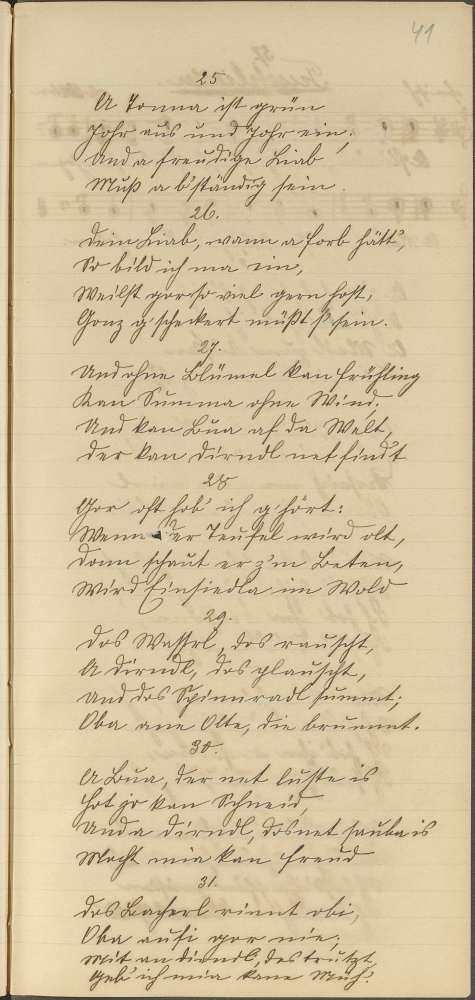 41
25
A Tonna ist grün
Johr aus und Johr ein;
Und a freudige Liab
Muß a b'ständig sein.
26.
Dein Liab, wann a Forb hätt',
So bild ich ma ein,
Weilst gor so viel gern host,
Gonz g'scheckert müßt s' sein.
27.
Und ohne Blümel kan Frühling
Kan Summa ohne Wind,
Und kan Bua af da Welt,
Der kan Dirndl net find't
28
Gor oft hob' ich g'hört:
Wenn der Teufel wird olt,
Donn schaut er z'm Beten,
Wird Einsiedla im Wold
29.
Dos Wasserl, dos rauscht,
A Dirndl, dos plauscht,
Und dos Spinnradl summt;
Oba ane Olte, die brummt.
30.
A Bua, der net luste is
Hot jo kan Schneid,
Und a Dirndl, dos net sauba is
Mocht mia kan Freud
31.
Dos Bacherl rinnt obi,
Oba aufi gor nie;
Mit an Dirndl, des trutzt,
Geb' ich mia kane Müh'.